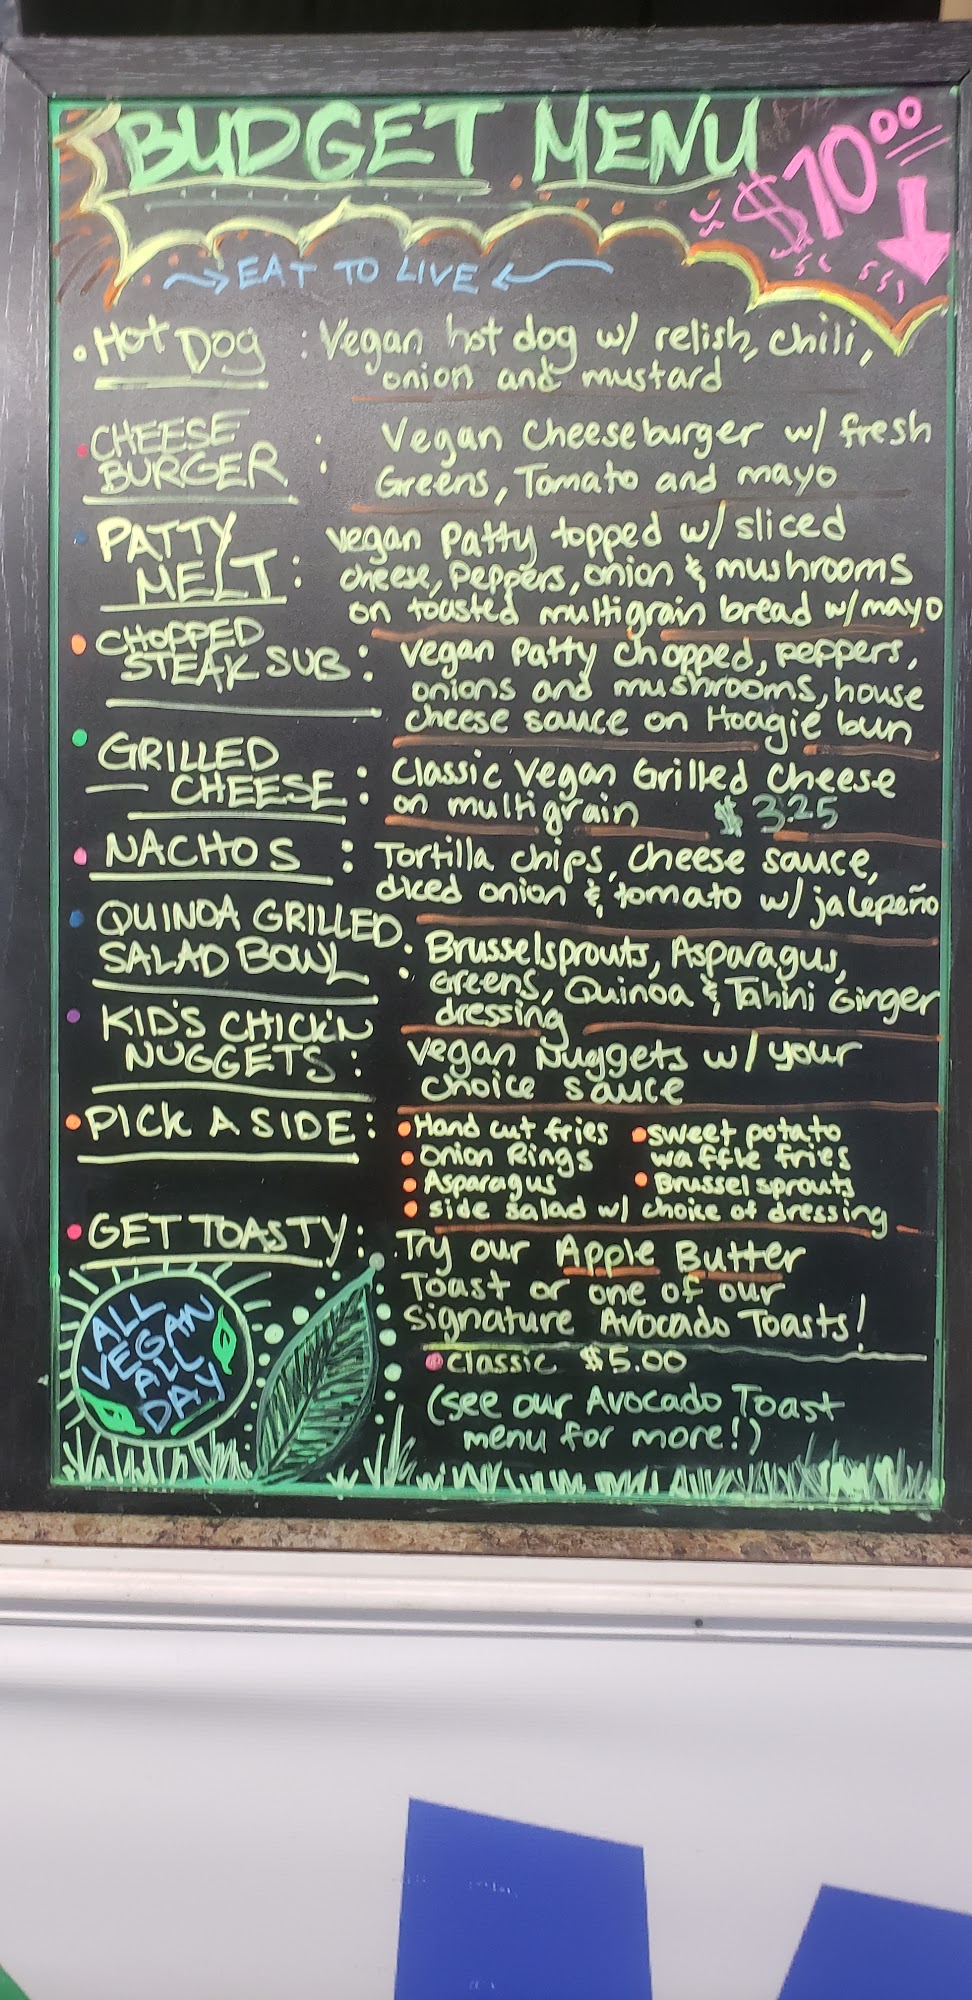 BUDGET MENU
$10.00
EAT TO LIVE
HOT DOG : Vegan hot dog w/ relish, chili,
onion and mustard
CHEESE
BURGER : Vegan Cheeseburger w/ fresh
Greens, Tomato and mayo
PATTY
MELT : Vegan Patty topped w/ sliced
cheese, Peppers, onion & mushrooms
on toasted multigrain bread w/ mayo
CHOPPED
STEAK SUB : Vegan Patty chopped, peppers,
onions and mushrooms, house
cheese sauce on Hoagie bun
GRILLED
CHEESE : Classic Vegan Grilled Cheese
on multigrain $3.25
NACHOS : Tortilla chips, cheese sauce,
diced onion & tomato w/ jalepeño
QUINOA GRILLED
SALAD BOWL : Brusselsprouts, Asparagus,
Greens, Quinoa & Tahini Ginger
dressing
KID'S CHICK'N
NUGGETS : Vegan Nuggets w/ your
choice sauce
PICK A SIDE : • Hand cut fries • sweet potato
waffle fries
• Onion Rings
• Asparagus • Brussel sprouts
• side salad w/ choice of dressing
GET TOASTY : Try our Apple Butter
Toast or one of our
Signature Avocado Toasts!
• Classic $5.00
(see our Avocado Toast
menu for more!)
ALL
VEGAN
ALL
DAY